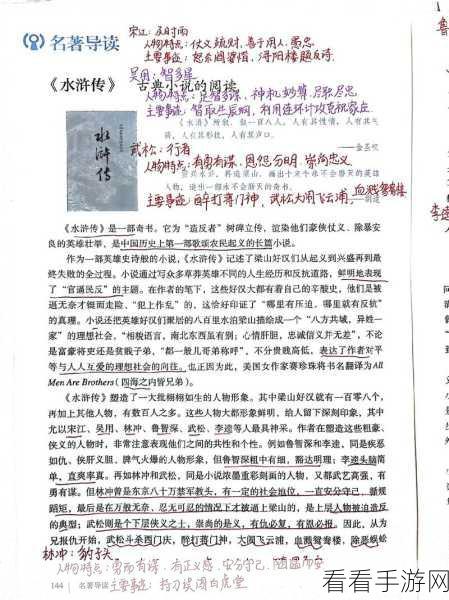 名著导读
宋江：及时雨
人物特点：仗义疏财、善于用人、愚忠
主要事迹：怒杀阎婆惜、浔阳楼题反诗.
《水浒传》 古典小说的阅读
吴用：智多星
人物特点：足智多谋、神机妙算、忠
主要事迹：智取生辰纲、利用连环计攻克祝家庄
水浒传
《水浒》所叙，叙一百八人，人有其性情，人有其气
质，人有其形状，人有其声口。
——金圣叹
武松：行者
人物特点：有勇有谋、恩怨分明、崇尚忠义
人物，论不出一部永不会磨灭的奇书。
主要事迹：醉打蒋门神、武松大闹飞云浦、血溅鸳鸯楼
《水浒传》是一部奇书。它为“造反者”树碑立传，渲染他们豪侠仗义、除暴安
良的英雄壮举，是中国历史上第一部歌颂农民起义的长篇小说。
作为一部英雄史诗般的小说，《水浒传》记述了梁山好汉们从起义到兴盛再到最
终失败的全过程。小说通过写众多草莽英雄不同的人生经历和反抗道路，鲜明地表现
了“官逼民反”的主题。在作者的笔下，这些好汉大都有着自己的辛酸史，他们是被
逼无奈才铤而走险、“犯上作乱”的，这恰好印证了“哪里有压迫，哪里就有反抗”
的真理。小说还把英雄好汉们聚居的八百里水泊梁山描绘成一个“八方共域，异姓一
家”的理想社会，“相貌语言，南北东西虽有别；心情肝胆，忠诚信义并无差”，不论
是富豪将吏还是贫贱子弟，“都一般儿哥弟称呼”，不分贵贱高低，表达了作者对平
等与人人互爱的理想社会的向往。也正因为此，美国女作家赛珍珠将书名翻译为All
Men Are Brothers（四海之内皆兄弟）。
《水浒传》塑造了一大批栩栩如生的人物形象。其中梁山好汉就有一百零八个，
再加上其他人物，有数百人之多。这些人物大都形象鲜明，给人留下深刻印象，其中
尤以宋江、吴用、林冲、鲁智深、武松、李逵等人最具神采。作者在塑造这些粗豪、
侠义的人物时，非常注意表现他们之间的共性和个性。例如鲁智深和李逵，同是疾恶
如仇、侠肝义胆、脾气火爆的人物形象，但鲁智深粗中有细，豁达明理；李逵头脑简
单，直爽率真。再如林冲和武松，同是小说浓墨重彩刻画的人物，又都武艺高强，有
勇有谋。但林冲曾是东京八十万禁军教头，有一定的社会地位，一直安分守己、循规
蹈矩，最后是在万般无奈、忍无可忍的情况下才被逼上梁山的，是上层人物被迫造反
的典型；武松则是个下层侠义之士，崇尚的是义，有仇必复，有恩必报。因此，从为
兄报仇开始，武松斗杀西门庆，醉打蒋门神，大闹飞云浦，血溅鸳鸯楼，除恶蜈蚣
林冲：豹子头
人物特点：勇而有谋、有正义感、安分守己、随遇而安
144 | 名著导读 主要事迹：持刀误闯白虎堂
看看手游网